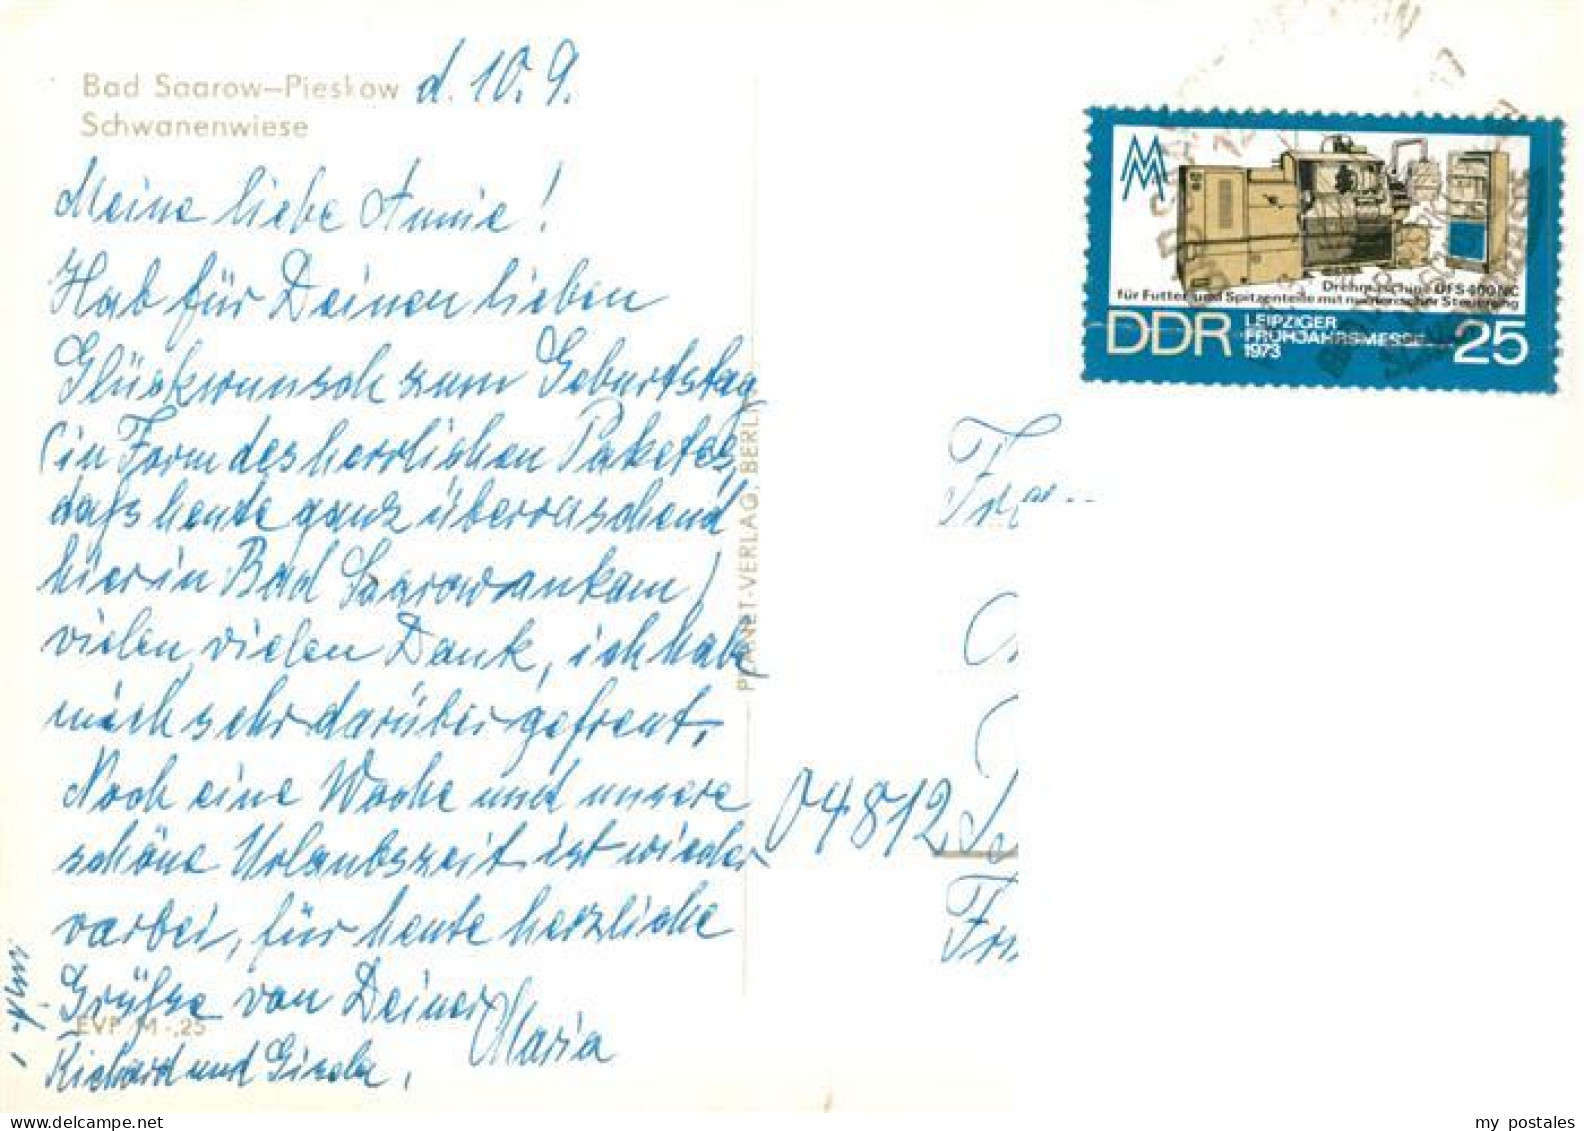 Bad Saarow—Pieskow d. 10. 9.
Schwanenwiese
Meine liebe Annie!
Hab für Deinen lieben
Glückwunsch zum Geburtstag
(in Form des herrlichen Paketes,
daß heute ganz überraschend
hier in Bad Saarow ankam)
vielen, vielen Dank, ich habe
mich sehr darüber gefreut.
Noch eine Woche und unsere
schöne Urlaubszeit ist wieder
vorbei, für heute herzliche
Grüße von Deiner
Maria
EVP M -,25
Richard und Gisela.
PLANET-VERLAG, BERLIN
Drehmaschine DFS 400 NC
für Futter- und Spitzenteile mit numerischer Steuerung
DDR LEIPZIGER
FRÜHJAHRSMESSE
1973
25
04812
my postales